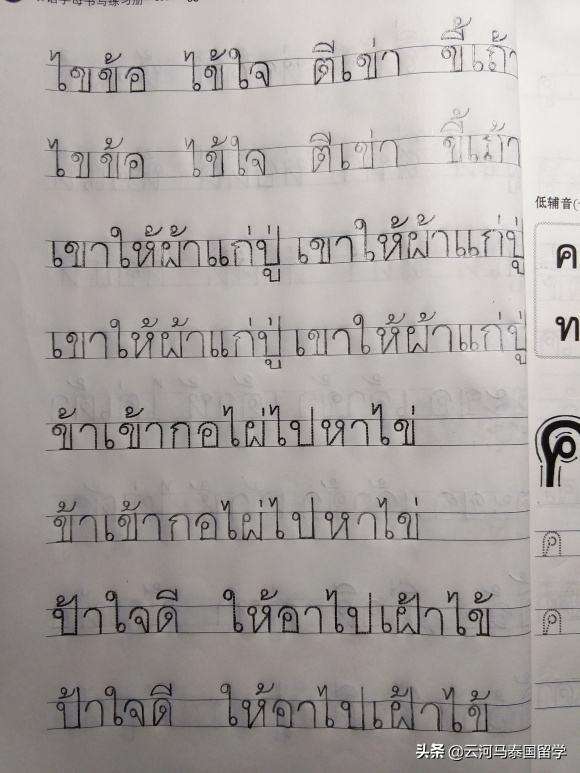 ไขข้อ ไข้ใจ ตีเข่า ขี้เถ้า
ไขข้อ ไข้ใจ ตีเข่า ขี้เถ้า
เขาให้ผ้าแก่ปู่ เขาให้ผ้าแก่ปู่
เขาให้ผ้าแก่ปู่ เขาให้ผ้าแก่ปู่
ข้าเข้ากอไผ่ไปหาไข่
ข้าเข้ากอไผ่ไปหาไข่
ป้าใจดี ให้อาไปเฝ้าไข้
ป้าใจดี ให้อาไปเฝ้าไข้
低辅音
ค
ท
ค
ค
头条 @云河马泰国留学